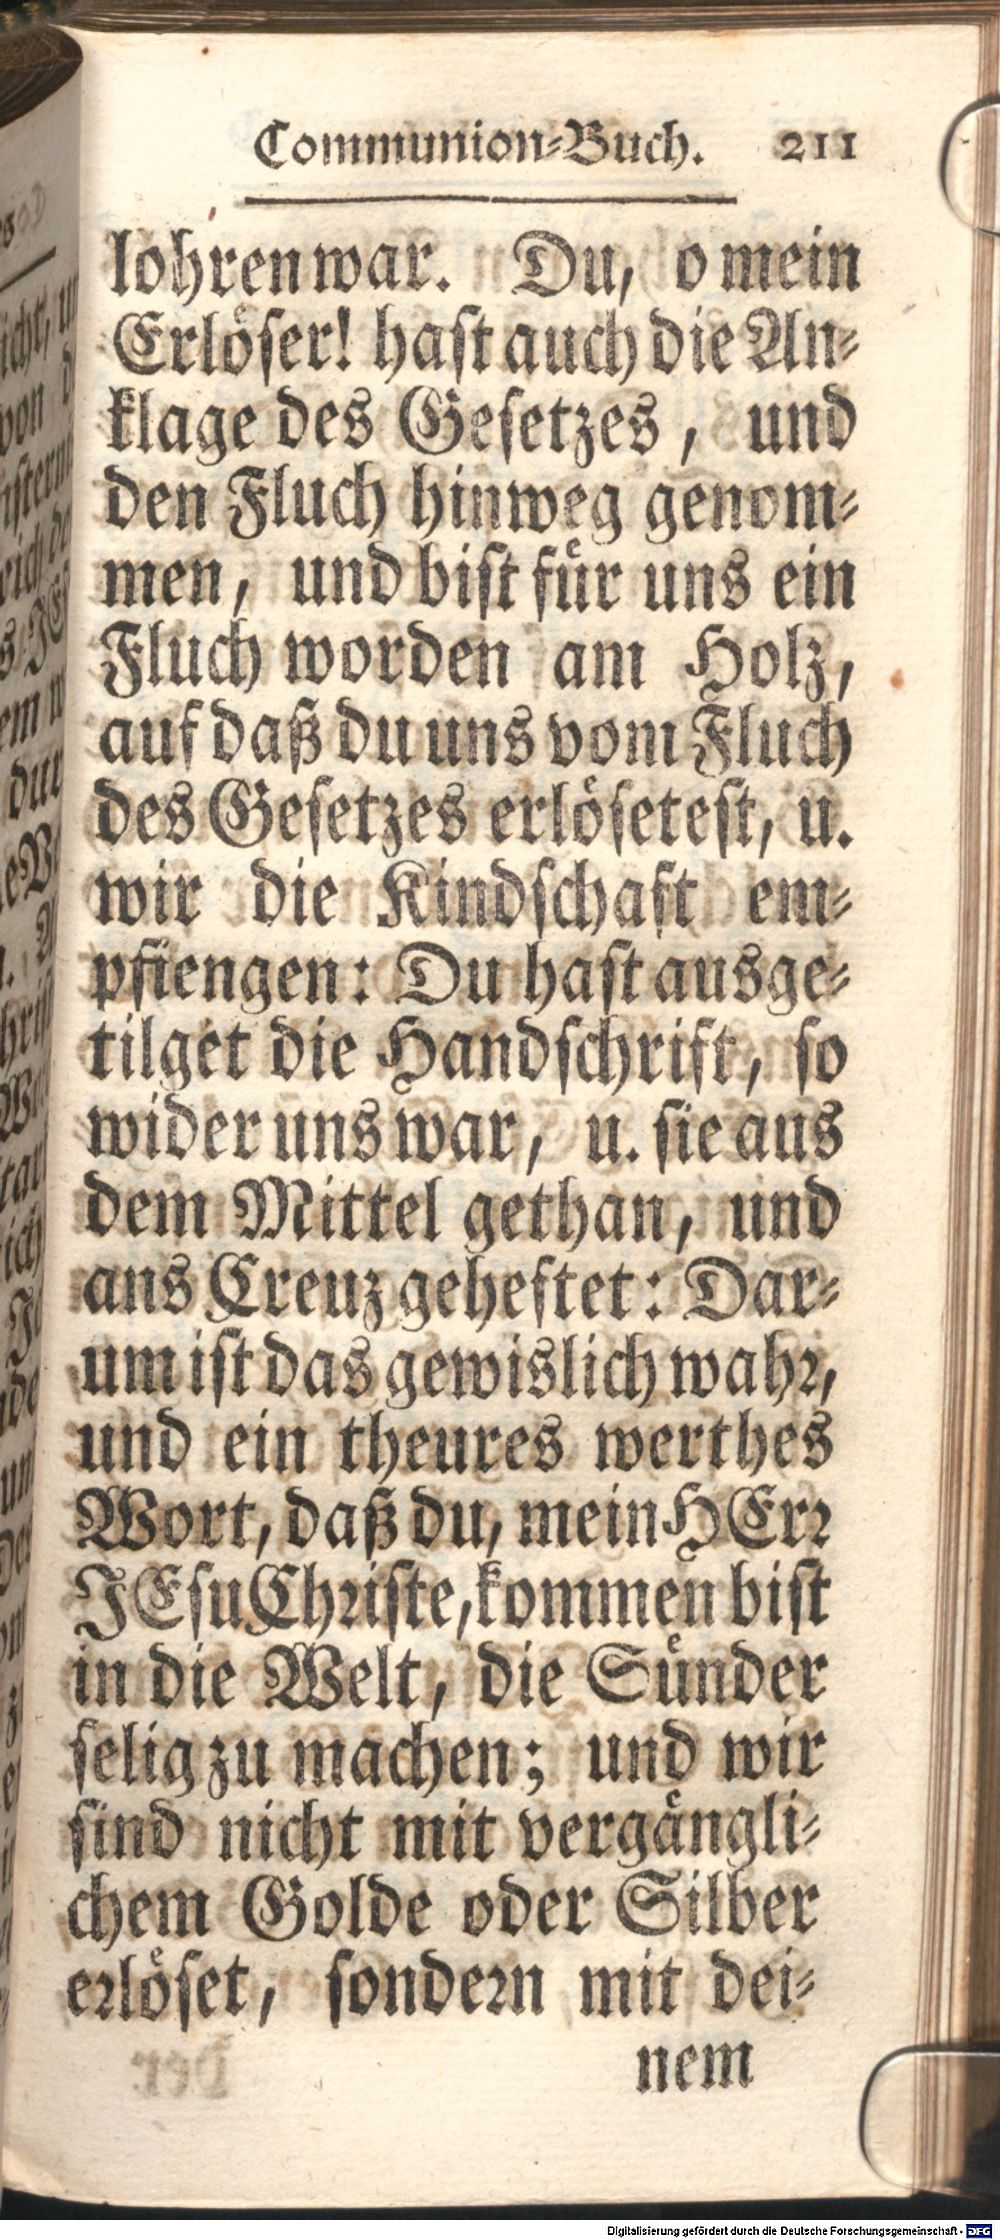 Communion-Buch. 211
lohren war. Du, o mein
Erlöser! hast auch die An-
klage des Gesetzes, und
den Fluch hinweg genom-
men, und bist für uns ein
Fluch worden am Holz,
auf daß du uns vom Fluch
des Gesetzes erlösetest, u.
wir die Kindschaft em-
pfiengen: Du hast ausge-
tilget die Handschrift, so
wider uns war, u. sie aus
dem Mittel gethan, und
ans Creuz geheftet: Dar-
um ist das gewislich wahr,
und ein theures werthes
Wort, daß du, mein HErr
JEsu Christe, kommen bist
in die Welt, die Sünder
selig zu machen; und wir
sind nicht mit vergängli-
chem Golde oder Silber
erlöset, sondern mit dei-
nem
Digitalisierung gefördert durch die Deutsche Forschungsgemeinschaft - DFG